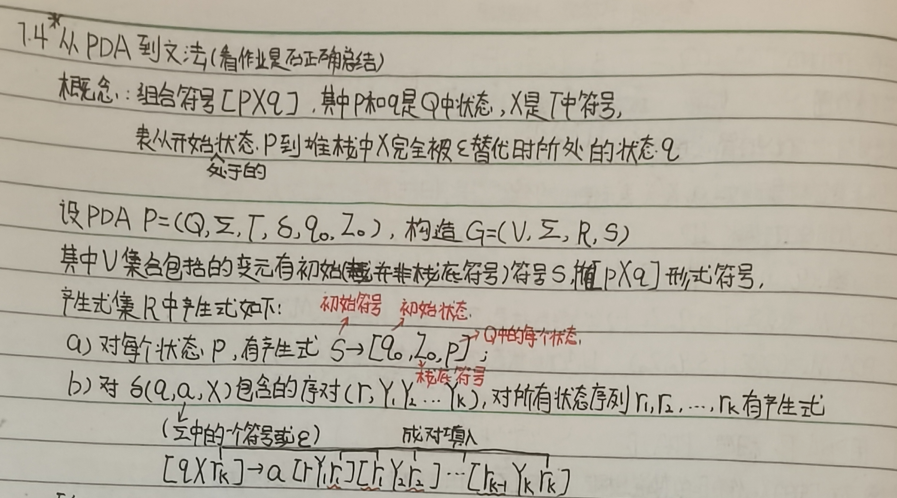 7.4* 从PDA到文法(看作业是否正确总结)
概念:组合符号[PXq],其中P和q是Q中状态,X是T中符号,
表从开始状态P到堆栈中X完全被ε替代时所处的状态q
处于的
设PDA P=(Q,Σ,T,δ,q₀,Z₀),构造G=(V,Σ,R,S)
其中V集合包括的变元有初始(并非栈底符号)符号S,和[pXq]形式符号,
产生式集R中产生式如下:
初始符号 初始状态
a) 对每个状态P,有产生式 S→[q₀,Z₀,p]; Q中的每个状态
栈底符号
b) 对δ(q,a,X)包含的序对(r,Y₁Y₂…Yₖ),对所有状态序列r₁,r₂,…,rₖ有产生式
(Σ中的一个符号或ε) 成对填入
[qXrₖ]→a[rY₁r₁][r₁Y₂r₂]…[rₖ₋₁Yₖrₖ]